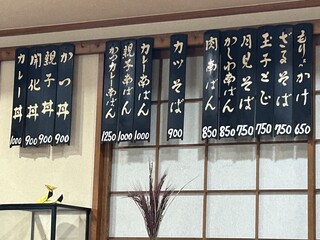 もり・かけ 650
ざるそば 750
玉子とじ 750
月見そば 750
かしわあんばん 850
肉あんばん 850
カツそば 900
カレーあんばん 1000
親子あんばん 1000
かつカレーあんばん 1250
かつ丼 900
親子丼 900
開化丼 900
カレー丼 1000